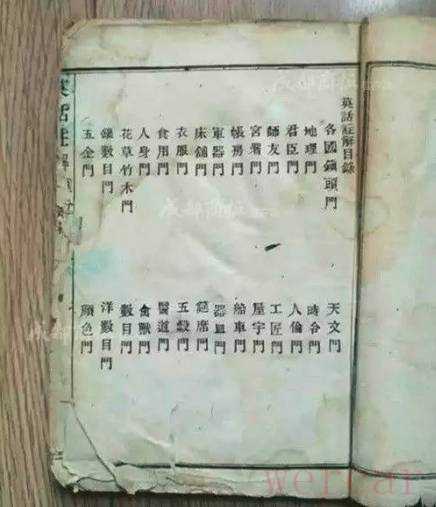 英話註解目錄
各國鎮頭門 天文門
地理門 時令門
君臣門 人倫門
師友門 工匠門
宮署門 屋宇門
帳房門 船車門
軍器門 器皿門
床鋪門 筵席門
衣服門 五穀門
食用門 醫道門
人身門 禽獸門
花草竹木門 數目門
銀數目門 洋數目門
五金門 顏色門
英話註解
成都商報